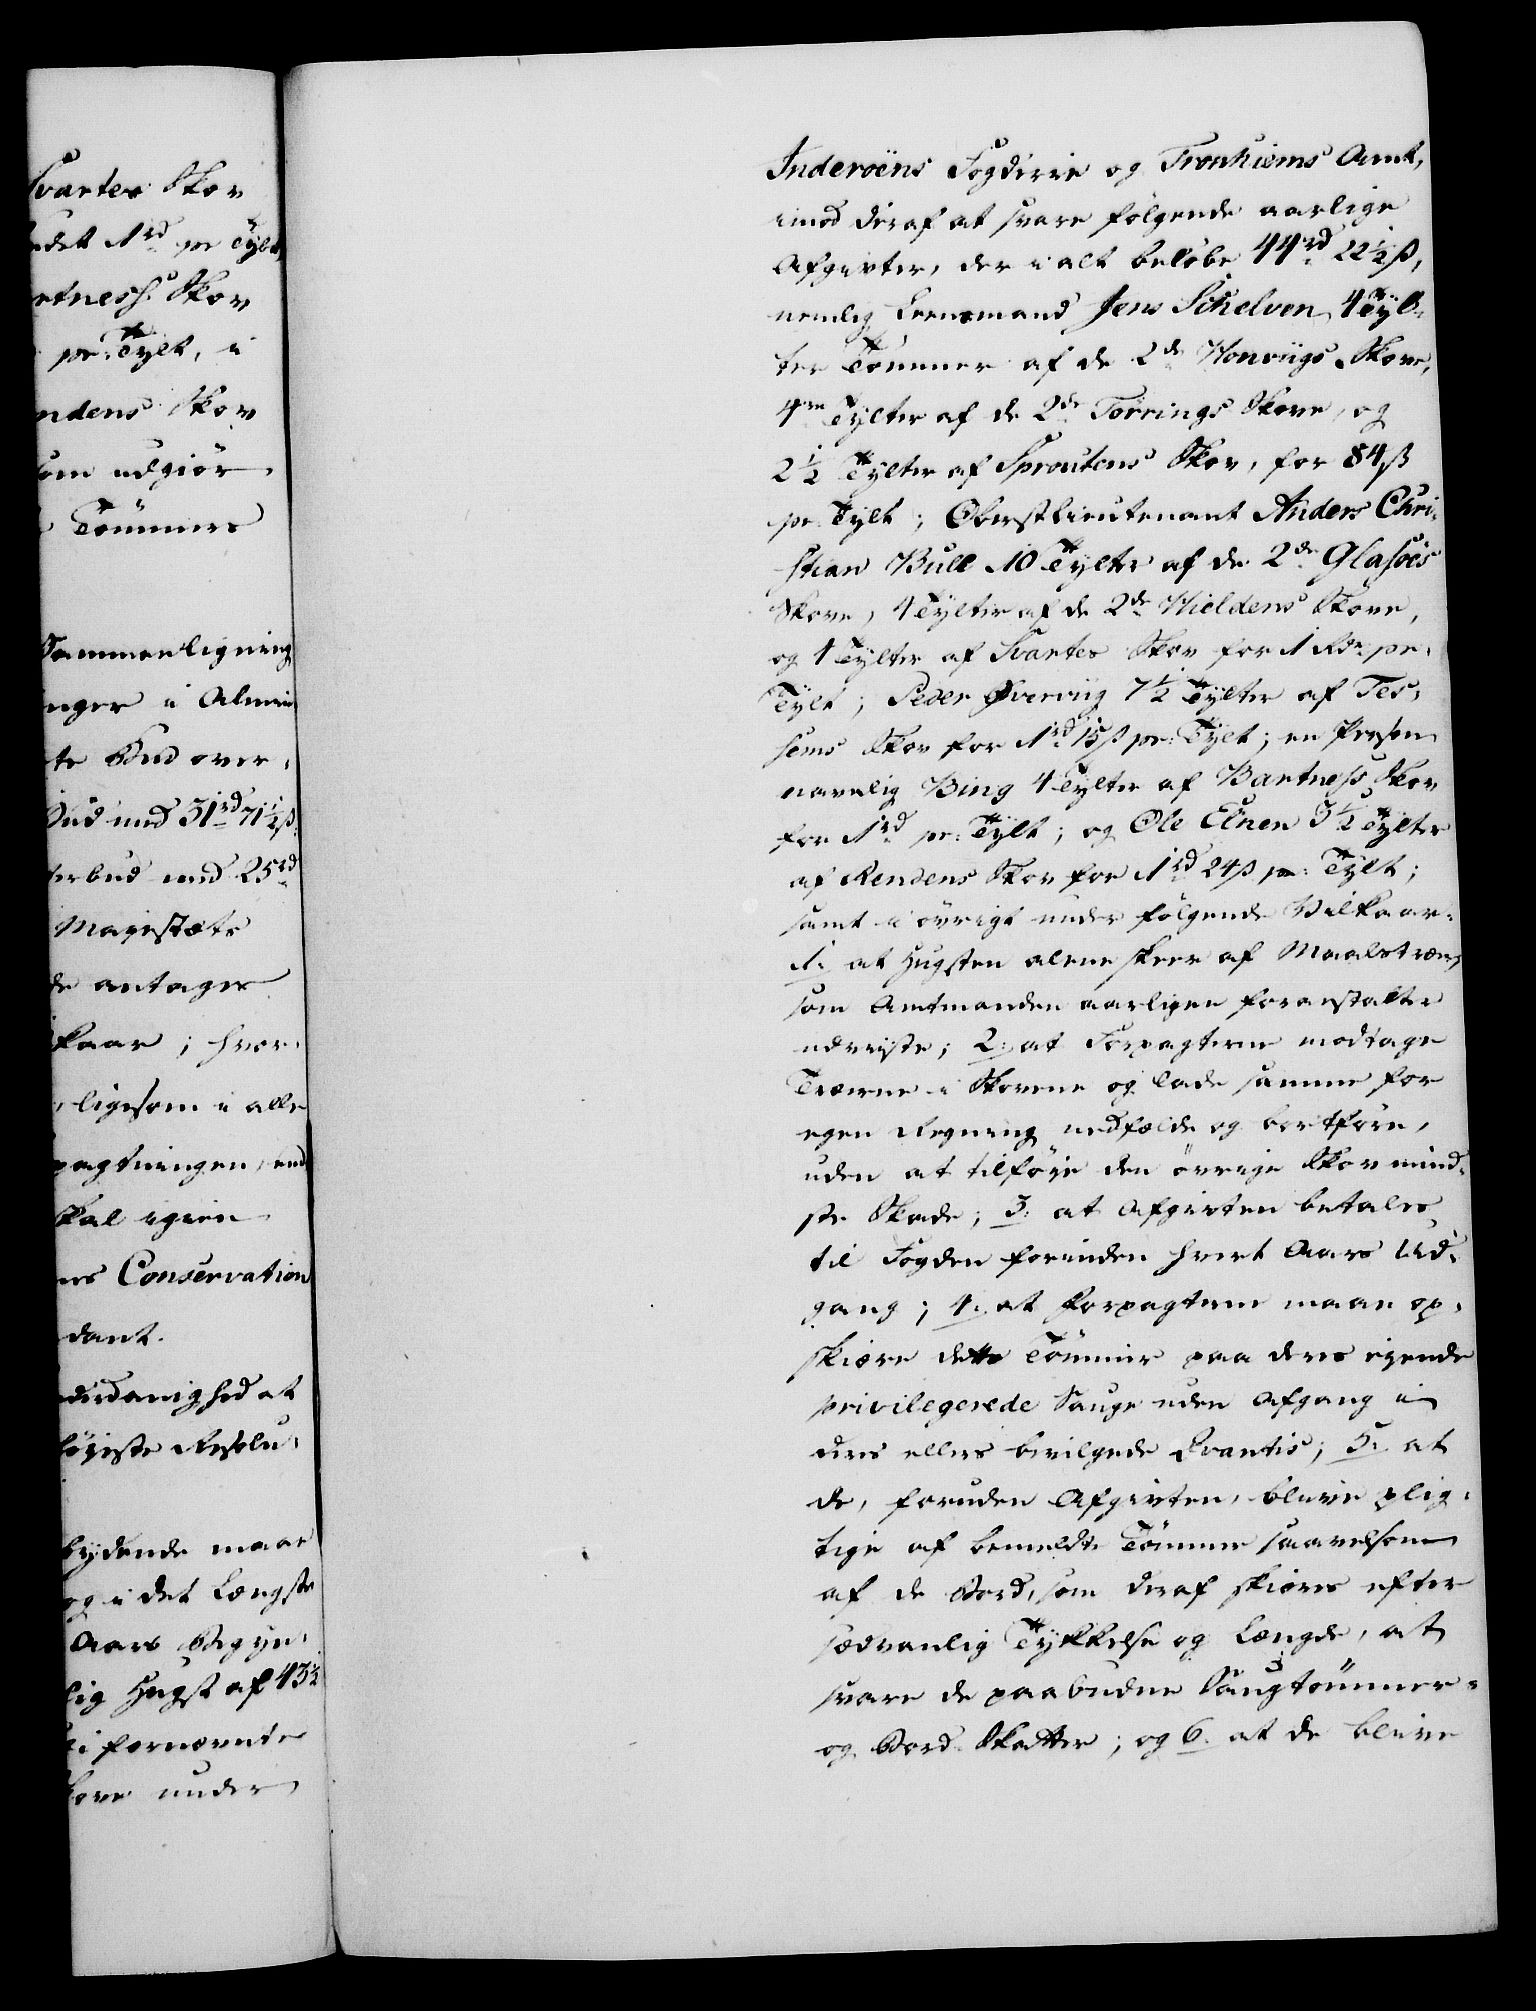 Svartes Skov
udet 1rd pr Tylt,
rtness. Skov
pr: Tylt, i
ndens Skov
som udgiör
Tømmers
Sammenligning
nger i Almin
te Bud over,
Bud med 31rd 71½ß.
erbud med 25rd
Majestæts
de antages
kaar; hvor-
ligesom i alle
pagtningen, end
skal igien
nes Conservation
dant.
nderdanighed at
höieste Resolu-
bydende maae
og i det længste
Aars Begyn-
lig Hugst af 43½
i fornævnte
kove under
Inderoëns Fogderie og Tronhiems Amt,
imod deraf at svare følgende aarlige
Afgivter, der i alt beløbe 44rd 22½ß,
nemlig Leensmand Jens Schelven 4 Tyl-
ter Tømmer af de 2de Honviigs Skove,
4re Tylter af de 2de Törrings Skove, og
2½ Tylter af Sproutens Skov, for 84ß
pr. Tylt; Oberstlieutenant Anders Chri-
stian Bull 10 Tylter af de 2de Glasöes
Skove, 4 Tylter af de 2de Hieldens Skove,
og 4 Tylter af Svartes Skov for 1 Rdr. pr.
Tylt; Peder Øverviig 7½ Tylter af Tes-
sems Skov for 1rd 15ß pr: Tylt; en Person
navnlig Bing 4 Tylter af Bartness Skov
for 1rd pr: Tylt; og Ole Elnen 3½ Tylter
af Rendens Skov for 1rd 24ß pr: Tylt;
samt i øvrigt under følgende Vilkaar.
1. at Hugsten alene skeer af Maalstræer,
som Amtmanden aarligen foranstalter
udviiste; 2. at Forpagterne modtage
Træerne i Skovene og lade samme for
egen Regning nedfælde og bortføre,
uden at tilføie den øvrige Skov mind-
ste Skade; 3. at Afgivten betales
til Fogden forinden hvert Aars Ud-
gang; 4. at Forpagterne maae op-
skiære dette Tømmer paa deres eyende
privilegerede Sauge uden Afgang i
deres ellers bevilgede Qvantis; 5. at
de, foruden Afgivten, blive plig-
tige af bemeldte Tømmer saavelsom
af de Bord, som deraf skiæres efter
sædvanlig Tykkelse og Længde, at
svare de paabudne Saugtømmer-
og Bord-Skatter; og 6. at de blive